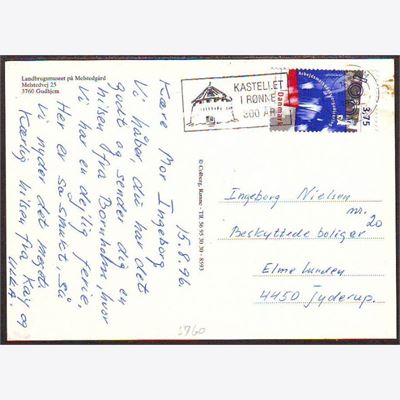 Landbrugsmuseet på Melstedgård
Melstedvej 25
3760 Gudhjem
15.8.96.
Kære Mor Ingeborg
Vi håber du har det
godt og sender dig en
hilsen fra Bornholm, hvor
Vi har en dejlig ferie,
Her er så smukt, så
Vi nyder det meget
Kærlig hilsen fra Kaj og
© Colberg, Rønne - Tlf. 56 95 30 30 - 8593
KASTELLET
I RØNNE
300 ÅR
Danmark
3.75
Ingeborg Nielsen
Beskyttede boliger nr. 20
Elme Lunden
4450 Jyderup.
3760